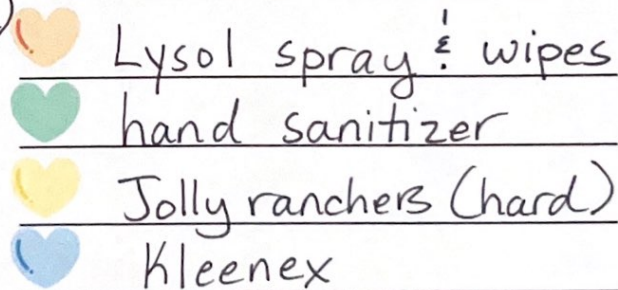 Lysol spray & wipes
hand sanitizer
Jolly ranchers (hard)
Kleenex